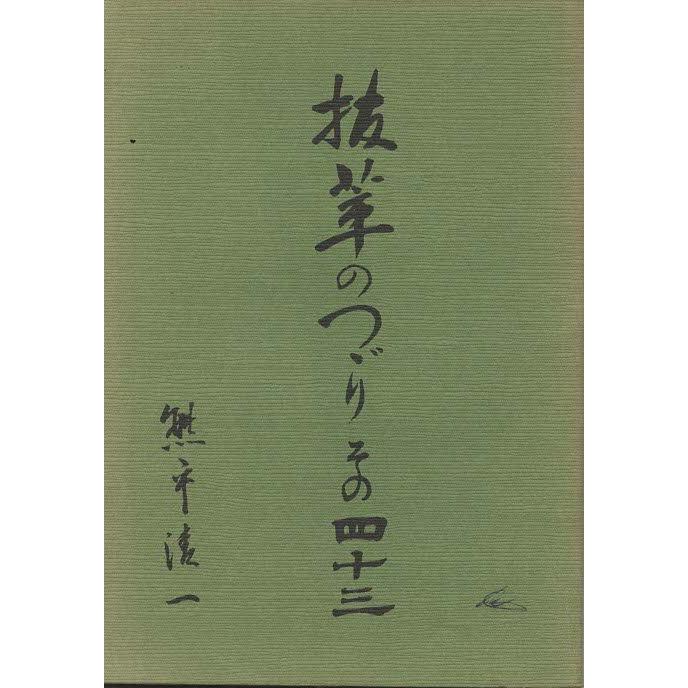 抜萃のつゞり その四十三
熊平清一